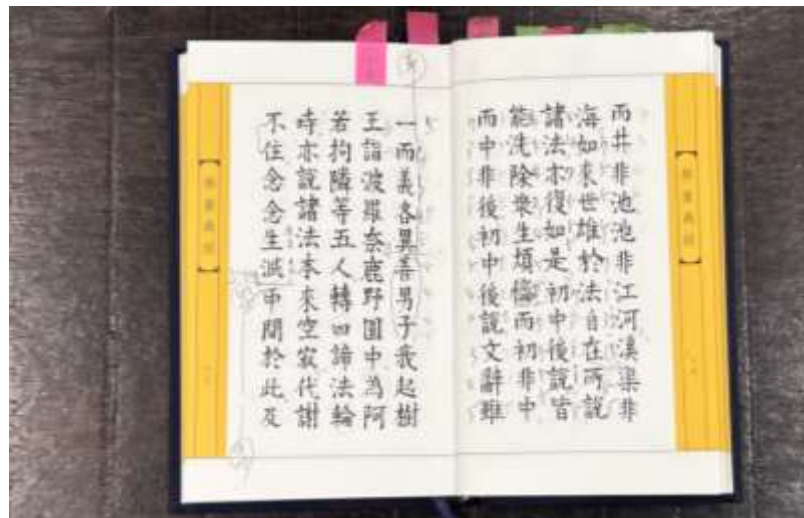 而井非池池非江河溪渠非
海如来世雄於法自在所說
諸法亦復如是初中後說皆
能洗除衆生煩惱而初非中
而中非後初中後說文辭雖
一而義各異善男子我起樹
王詣波羅奈鹿野園中為阿
若拘隣等五人轉四諦法輪
時亦說諸法本來空寂代謝
不住念念生滅中間於此及